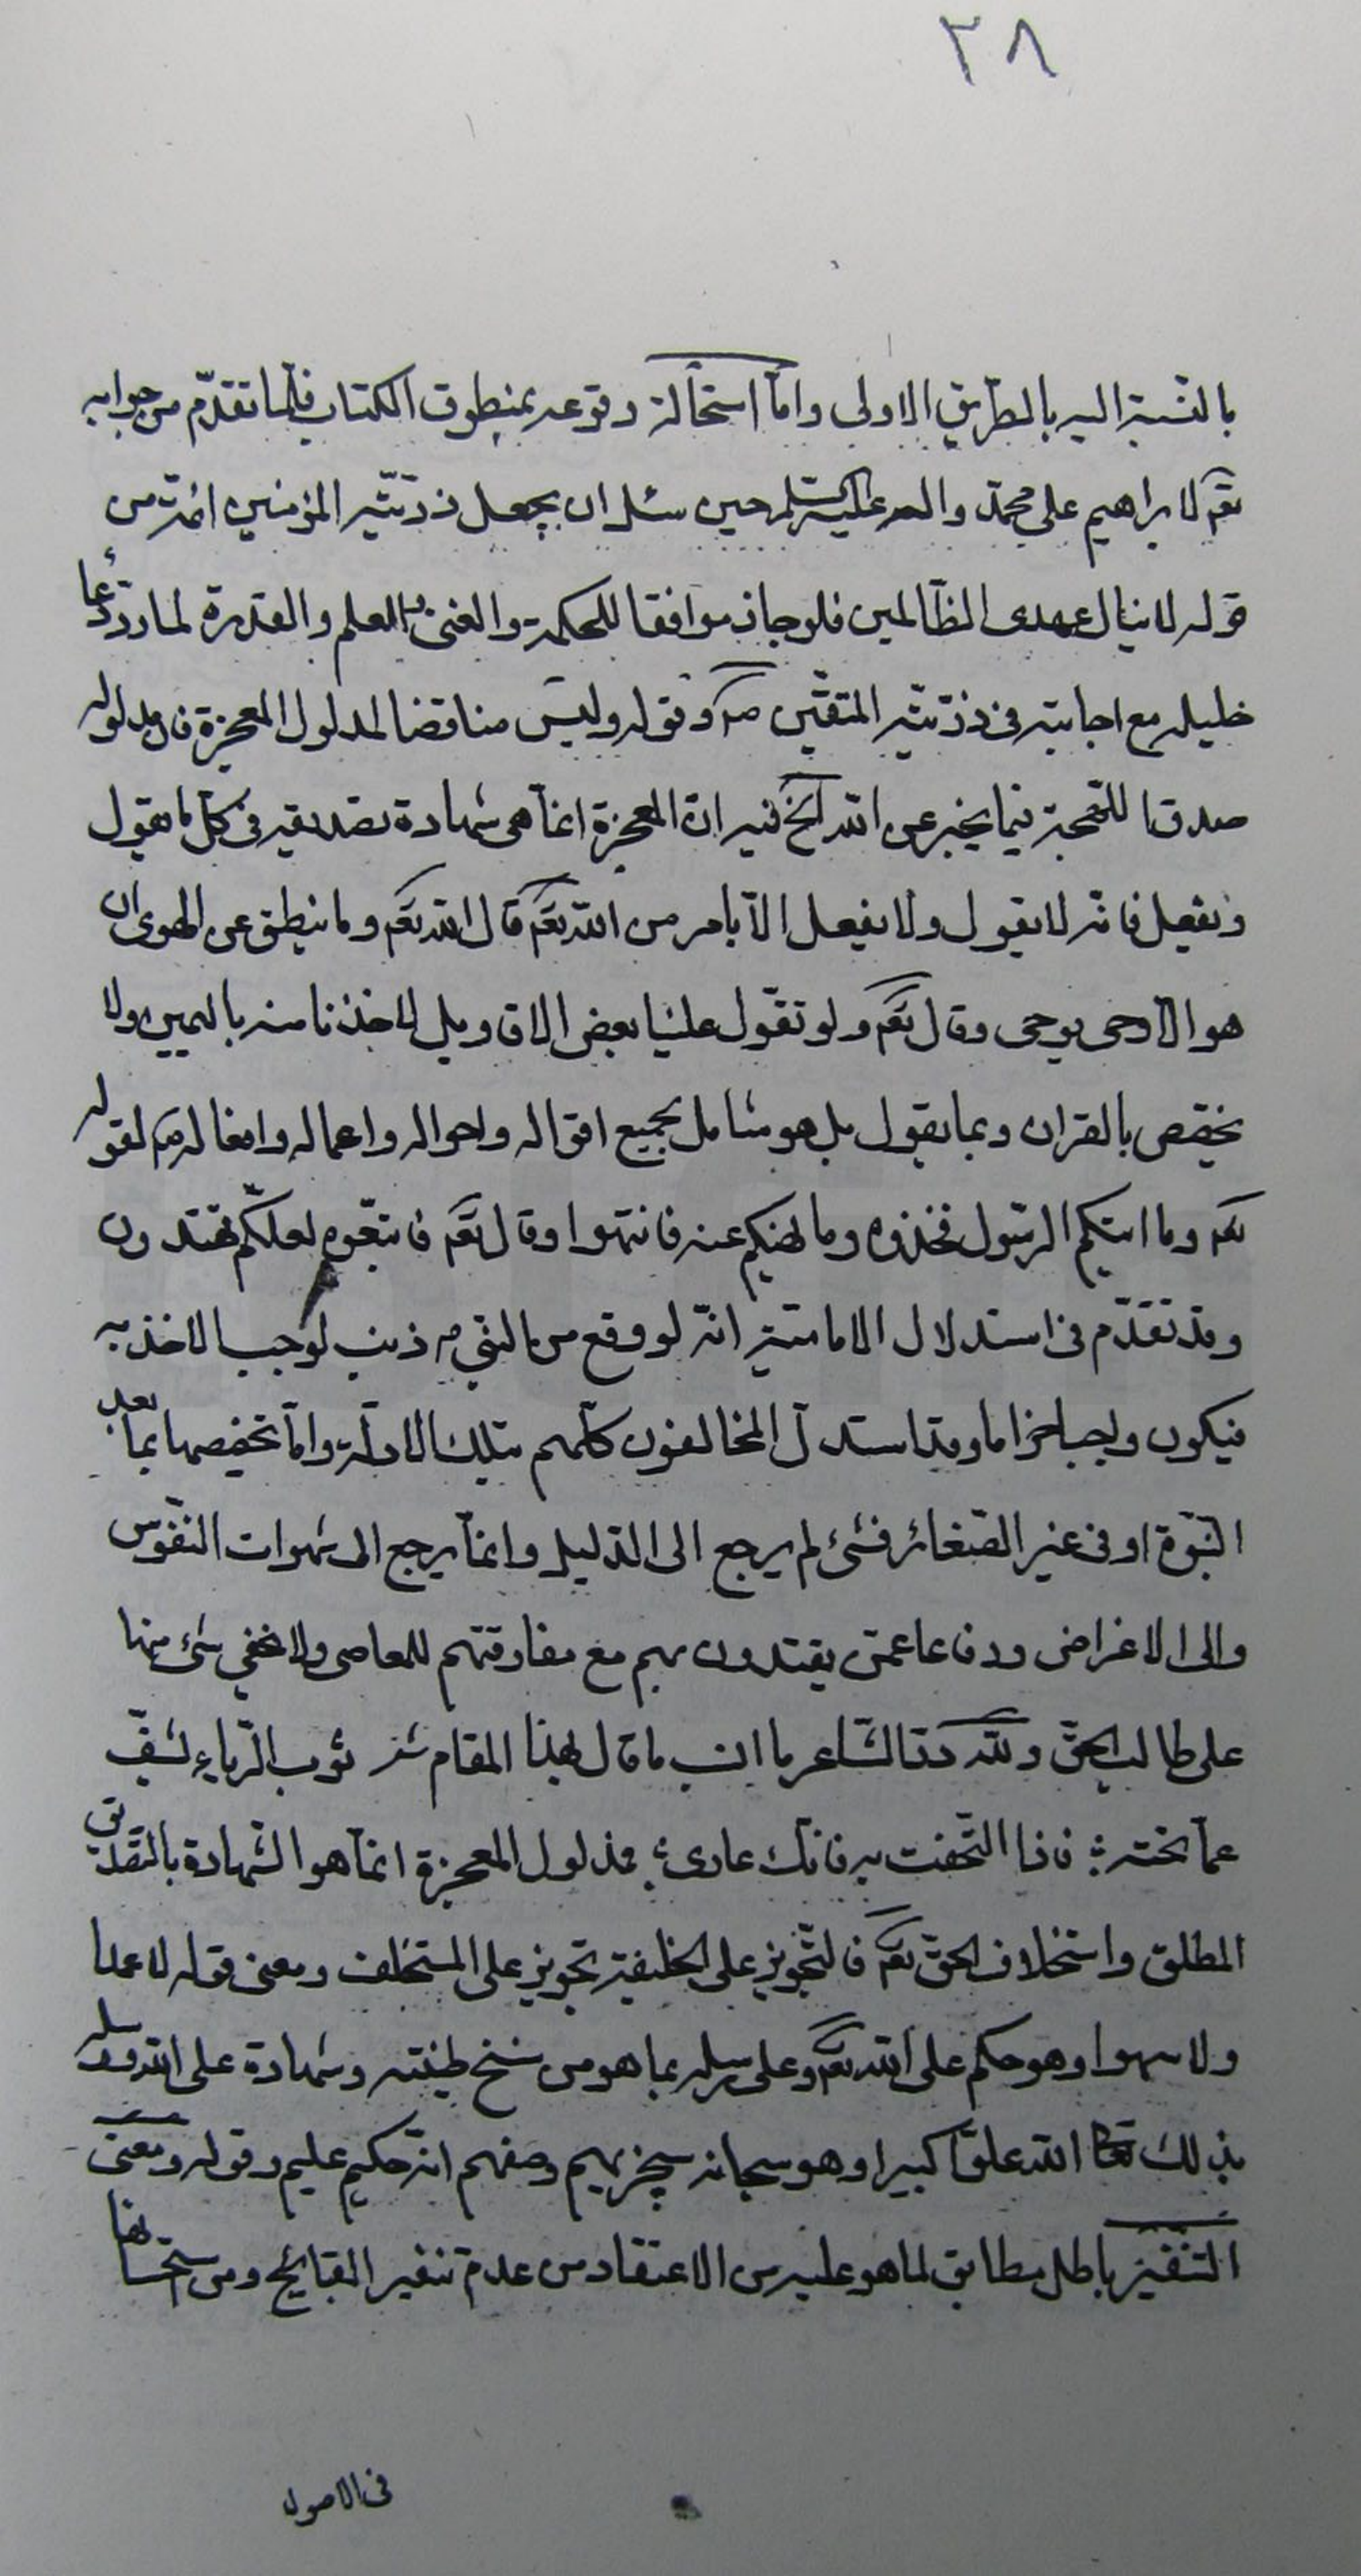 ٢٨
بالنسبة اليه بالطريق الاولى وامّا استحالة وقوعه بمنطوق الكتاب فلما تقدّم من جوابه
تعم لابراهيم على محمد واله وعليه السلم حين سئله ان يجعل ذريّته المؤمنين ائمة من
قوله لاينال عهدى الظالمين فلو جاز موافقا للحكمة والغنى والعلم والقدرة لما ردّ دعاء
خليله مع اجابته فى ذريّته المتقين وقوله وليس مناقضا لمدلول المعجزة فان مدلوله
صدق للتحجة فيما يخبر عن الله الخ فيه انّ المعجزة انمّا هى شهادة بتصديقه فى كلّ ما يقول
ويفعل فانّه لا يقول ولا يفعل الّا بامر من الله تعم قال الله تعم وما ينطق عن الهوى ان
هو الّا وحى يوحى وقال تعم ولو تقوّل علينا بعض الاقاويل لاخذنا منه باليمين ولا
يختص بالقران وبما يقول بل هو شامل بجميع اقواله واحواله واعماله وافعاله ص لقوله
تعم وما اتيكم الرّسول فخذوه وما نهيكم عنه فانتهوا وقال تعم فاتبعوه لعلّكم تهتدون
وقد تقدّم فى استدلال الاماميّة انّه لو وقع من النبي ص ذنب لوجب الاخذ به
فيكون واجبا حراما وقد استدلّ المخالفون كلّهم بتلك الادلّة وامّا تخصيصها بما بعد
النبّوة او فى غير الصّغائر فشئ لم يرجع الى الدّليل وانمّا يرجع الى شهوات النّفوس
والى الاغراض ودفاعا عمّن يقتدون بهم مع مفارقتهم للمعاصى ولا يخفى شئ منها
على طالب الحقّ ولله درّ الشّاعر ما انسب ما قال لهذا المقام شعر ثوب الرّياء يشفّ
عمّا تحته فاذا التحفت به فانّك عارى فمدلول المعجزة انمّا هو الشّهادة بالتّصديق
المطلق واستخلاف الحقّ تعم فالتّجويز على الخليفة تجويز على المستخلف ومعنى قوله لا عمدا
ولا سهوا وهو حكم على الله تعم وعلى رسله بما هو من سنخ طينته وشهادة على الله ورسله
بذلك تعالى الله علوّا كبيرا وهو سبحانه سيجزيهم وصفهم انّه حكيم عليم وقوله ومعنى
التنفير باطل مطابق لما هو عليه من الاعتقاد من عدم تنفير القبائح ومن استحسانها
فى الاصول